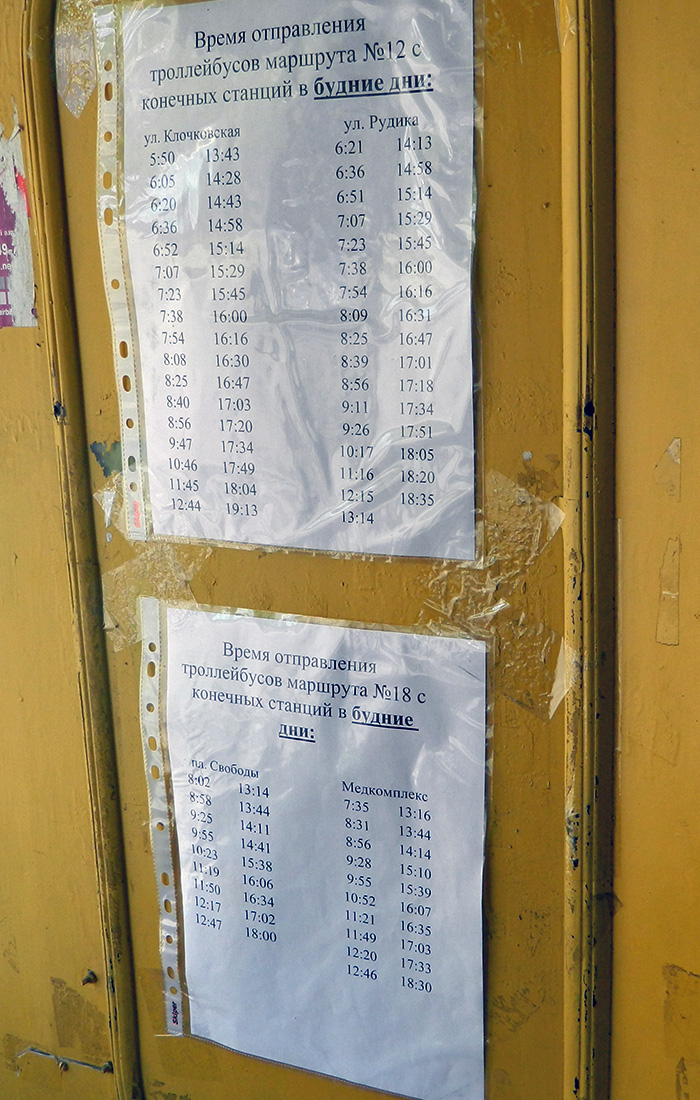 Время отправления
троллейбусов маршрута №12 с
конечных станций в будние дни:
ул. Клочковская ул. Рудика
5:50 13:43 6:21 14:13
6:05 14:28 6:36 14:58
6:20 14:43 6:51 15:14
6:36 14:58 7:07 15:29
6:52 15:14 7:23 15:45
7:07 15:29 7:38 16:00
7:23 15:45 7:54 16:16
7:38 16:00 8:09 16:31
7:54 16:16 8:25 16:47
8:08 16:30 8:39 17:01
8:25 16:47 8:56 17:18
8:40 17:03 9:11 17:34
8:56 17:20 9:26 17:51
9:47 17:34 10:17 18:05
10:46 17:49 11:16 18:20
11:45 18:04 12:15 18:35
12:44 19:13 13:14
Skiper
Время отправления
троллейбусов маршрута №18 с
конечных станций в будние
дни:
пл. Свободы Медкомплекс
8:02 13:14 7:35 13:16
8:58 13:44 8:31 13:44
9:25 14:11 8:56 14:14
9:55 14:41 9:28 15:10
10:23 15:38 9:55 15:39
11:19 16:06 10:52 16:07
11:50 16:34 11:21 16:35
12:17 17:02 11:49 17:03
12:47 18:00 12:20 17:33
12:46 18:30
Skiper